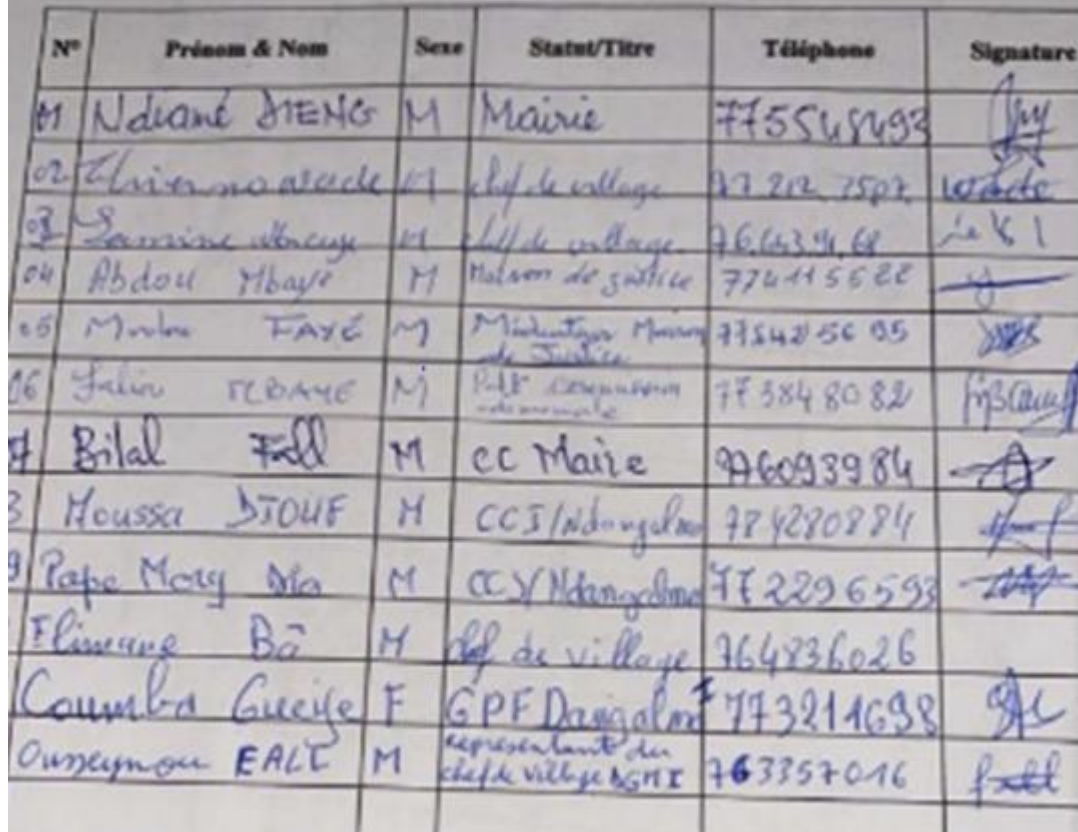 N° Prénom & Nom Sexe Statut/Titre Téléphone Signature
01 Ndiamé DIENG M Mairie 775548493
02 M chef de village 77 212 7507
03 Lamine M chef de village 76.643.94.68
04 Abdou Mbaye M Maison de justice 774115522
05 FAYE M Médiateur Maison 775425695
de Justice
06 MBAYE M Pdt commission 77 384 80 82
7 Bilal Fall M CC Mairie 776093984
8 Moussa DIOUF M CCI/Ndangalma 784280884
9 Pape Mory Dia M CCI/Ndangalma 77 2296593
Elimane Bâ M chef de village 764836026
Coumba Gueye F GPF Dangalma 773211698
Ousseynou FALL M représentant du 763357016
chef de village